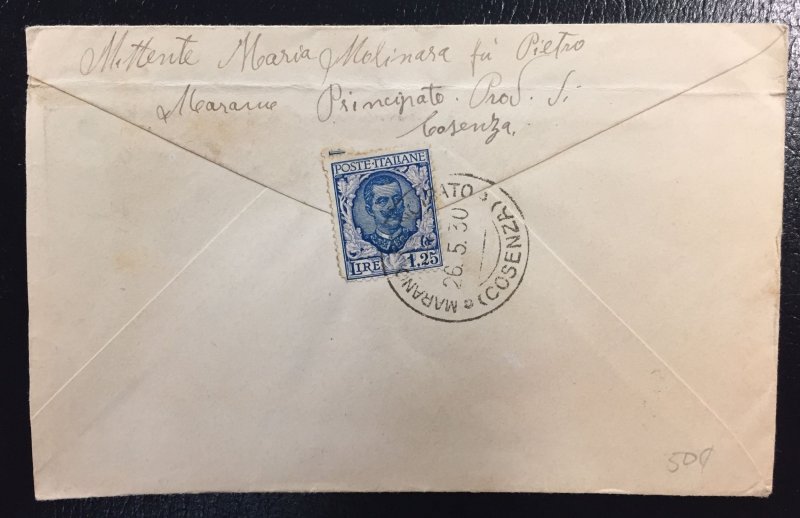 Mittente Maria Molinara fú Pietro
Marano Principato. Prov. di
Cosenza.
POSTE·ITALIANE
LIRE 1,25
MARANO PRINCIPATO (COSENZA)
26.5.30
50¢